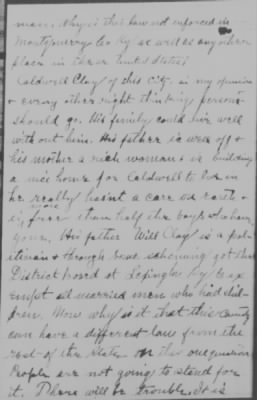 man. Why is this law not enforced in
Montgomery Co Ky as well as any other
place in these United States?
Caldwell Clay of this city in my opinion
& every other right thinking person
should go. His family could live well
with out him. His father is well off &
his mother a rich woman & is building
a nice home for Caldwell to live in
he really hasn't a care on earth &
is freer than half the boys who have
gone. His father Will Clay is a pol-
itician & through some scheming got the
District board at Lexington Ky to ex
empt all married men who had chil
dren. Now why is it that this County
can have a different law from the
rest of the State. On this one question
People are not going to stand for
it. There will be trouble. It is